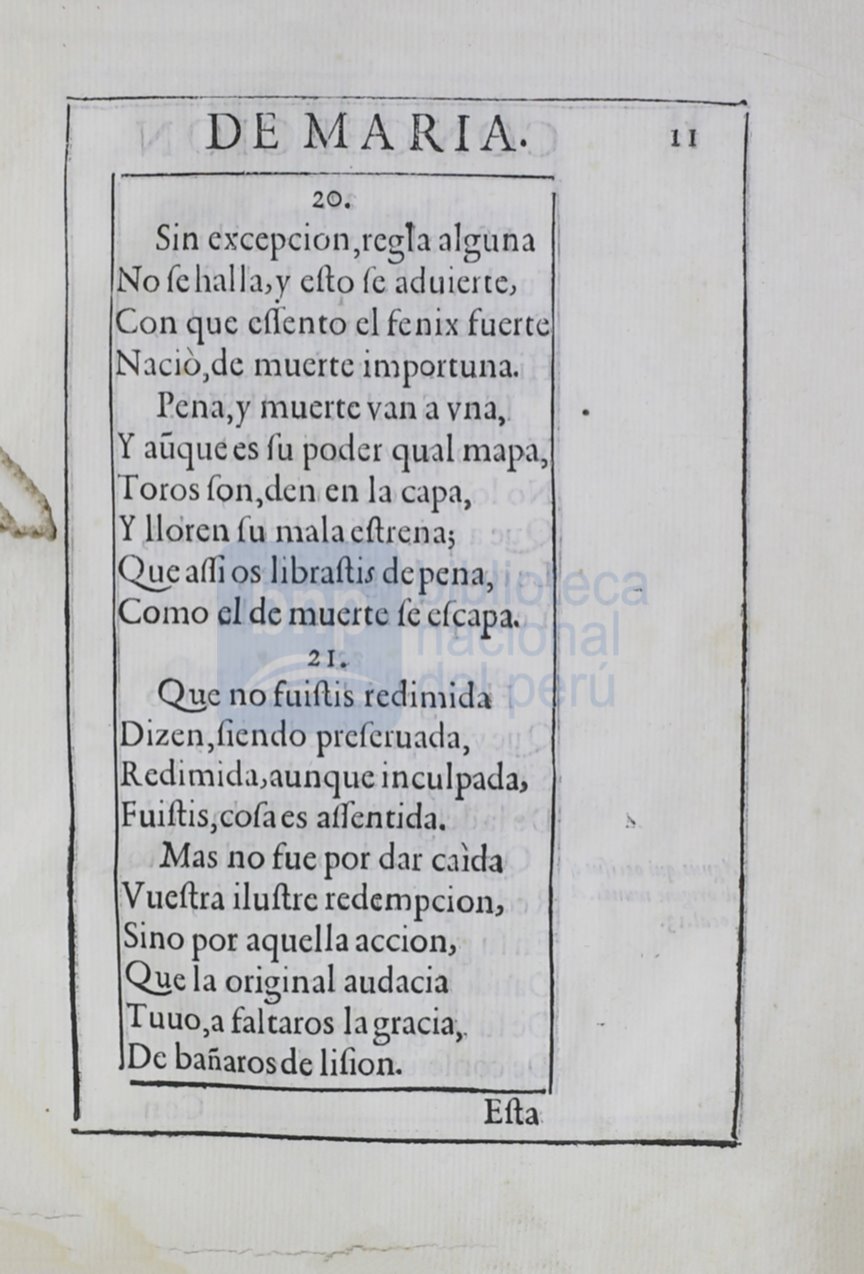 DE MARIA. 11
20.
Sin excepcion,regla alguna
No ſe halla,y eſto ſe aduierte,
Con que eſſento el fenix fuerte
Naciò,de muerte importuna.
Pena,y muerte van a vna,
Y aũque es ſu poder qual mapa,
Toros ſon,den en la capa,
Y lloren ſu mala eſtrena;
Que aſſi os libraſtis de pena,
Como el de muerte ſe eſcapa.
21.
Que no fuiſtis redimida
Dizen,ſiendo preſeruada,
Redimida,aunque inculpada,
Fuiſtis,coſa es aſſentida.
Mas no fue por dar caìda
Vueſtra iluſtre redempcion,
Sino por aquella accion,
Que la original audacia
Tuuo,a faltaros la gracia,
De bañaros de liſion.
Eſta
bnp biblioteca
nacional
del perú